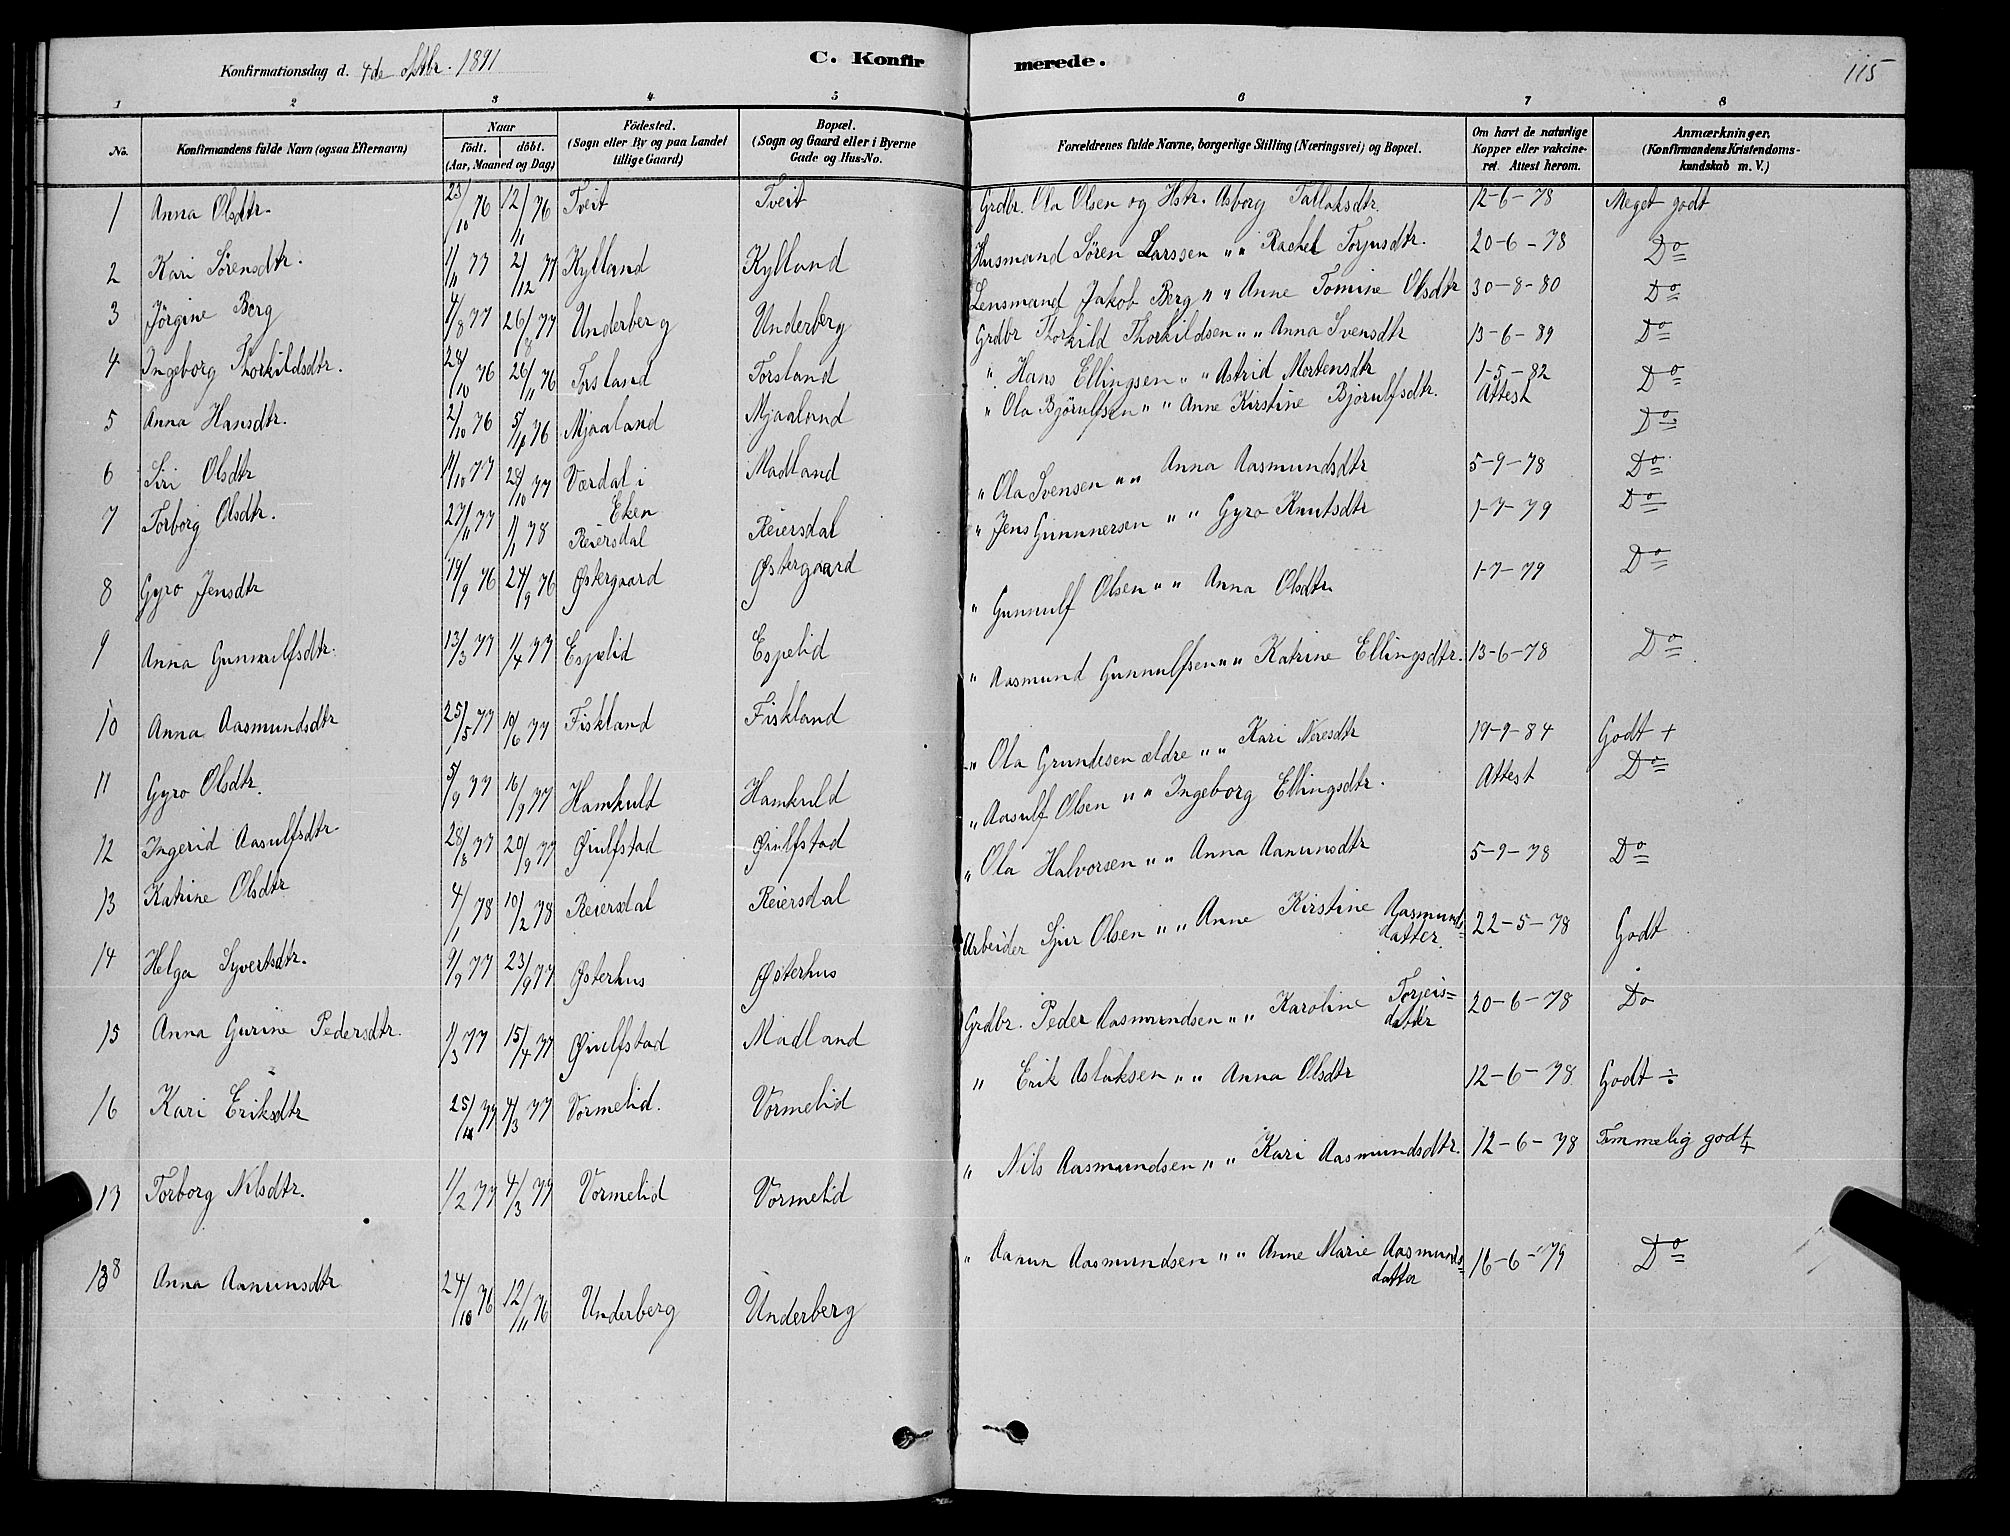 Konfirmationsdag d. 4de Oktbr. 1891
C. Konfirmerede.
115
1 2 3 4 5 6 7 8
No. | Konfirmandens fulde Navn (ogsaa Efternavn) | Naar födt. döbt. (Aar, Maaned og Dag) | Födested. (Sogn eller By og paa Landet tillige Gaard) | Bopæl. (Sogn og Gaard eller i Byerne Gade og Hus-No. | Forældrenes fulde Navne, borgerlige Stilling (Næringsvei) og Bopæl. | Om havt de naturlige Kopper eller vakcineret. Attest herom. | Anmærkninger, (Konfirmandens Kristendomskundskab m. V.)
1 Anna Olsdtr. 23/10 76 12/11 76 Tveit Tveit Grdbr. Ola Olsen og Hstr. Asborg Tallaksdtr. 12-6-78 Meget godt
2 Kari Sörensdtr. 1/11 77 2/12 77 Kylland Kylland Husmand Sören Larssen " " Rachel Torjusdtr. 20-6-78 Do
3 Jörgine Berg 4/8 77 26/8 77 Underberg Underberg Lensmand Jakob Berg " " Anne Tomine Olsdtr 30-8-80 Do
4 Ingeborg Thorkildsdtr. 28/10 76 26/11 76 Torsland Torsland Grdbr Thorkild Thorkildsen " " Anna Svensdtr 13-6-89 Do
5 Anna Hansdtr. 2/10 76 5/11 76 Mjaaland Mjaaland " Hans Ellingsen " " Astrid Mortensdtr 1-5-82 Do
6 Siri Olsdtr 11/10 77 28/10 77 Værdal i Eken Madland " Ola Björulfsen " " Anne Kirstine Björulfsdtr. Attest Do
7 Torborg Olsdtr. 27/11 77 1/1 78 Reiersdal Reiersdal " Ola Svensen " " Anna Aasmundsdtr 5-9-78 Do
8 Gyro Jensdtr 19/9 76 24/9 76 Østergaard Østergaard " Jens Gunnnersen " " Gyro Knutsdtr 1-7-79 Do
9 Anna Gunnulfsdtr. 13/3 77 1/4 77 Espelid Espelid " Gunnulf Olsen " " Anna Olsdtr. 1-7-79 Do
10 Anna Aasmundsdtr 25/5 77 10/6 77 Fiskland Fiskland " Aasmund Gunnulfsen " " Katrine Ellingsdtr. 13-6-78 Do
11 Gyro Olsdtr. 5/9 77 16/9 77 Hamkuld Hamkuld " Ola Grundesen ældre " " Kari Neresdtr 19-9-84 Godt +
12 Ingerid Aasulfsdtr. 28/8 77 20/9 77 Øiulfstad Øiulfstad " Aasulf Olsen " " Ingeborg Ellingsdtr. Attest Do
13 Katrine Olsdtr 4/1 78 10/2 78 Reiersdal Reiersdal " Ola Halvorsen " " Anna Aanunsdtr 5-9-78 Do
14 Helga Syvertsdtr. 9/9 77 23/9 77 Østerhus Østerhus Arbeider Sjur Olsen " " Anne Kirstine Aasmunds=datter. 22-5-78 Godt
15 Anna Gurine Pedersdtr. 1/3 77 15/4 77 Øiulfstad Madland Grdbr. Peder Aasmundsen " " Karoline Torjeis=datter 20-6-78 Do
16 Kari Eriksdtr 25/1 77 4/3 77 Vormelid. Vormelid " Erik Aslaksen " " Anna Olsdtr 12-6-78 Godt ÷
17 Torborg Nilsdtr. 1/2 77 4/3 77 Vormelid Vormelid " Nils Aasmundsen " " Kari Aasmundsdtr. 12-6-78 Temmelig godt +
18 Anna Aanunsdtr 24/10 76 12/11 76 Underberg Underberg " Aanun Aasmundsen " " Anne Marie Aasmunds=datter 16-6-79 Do